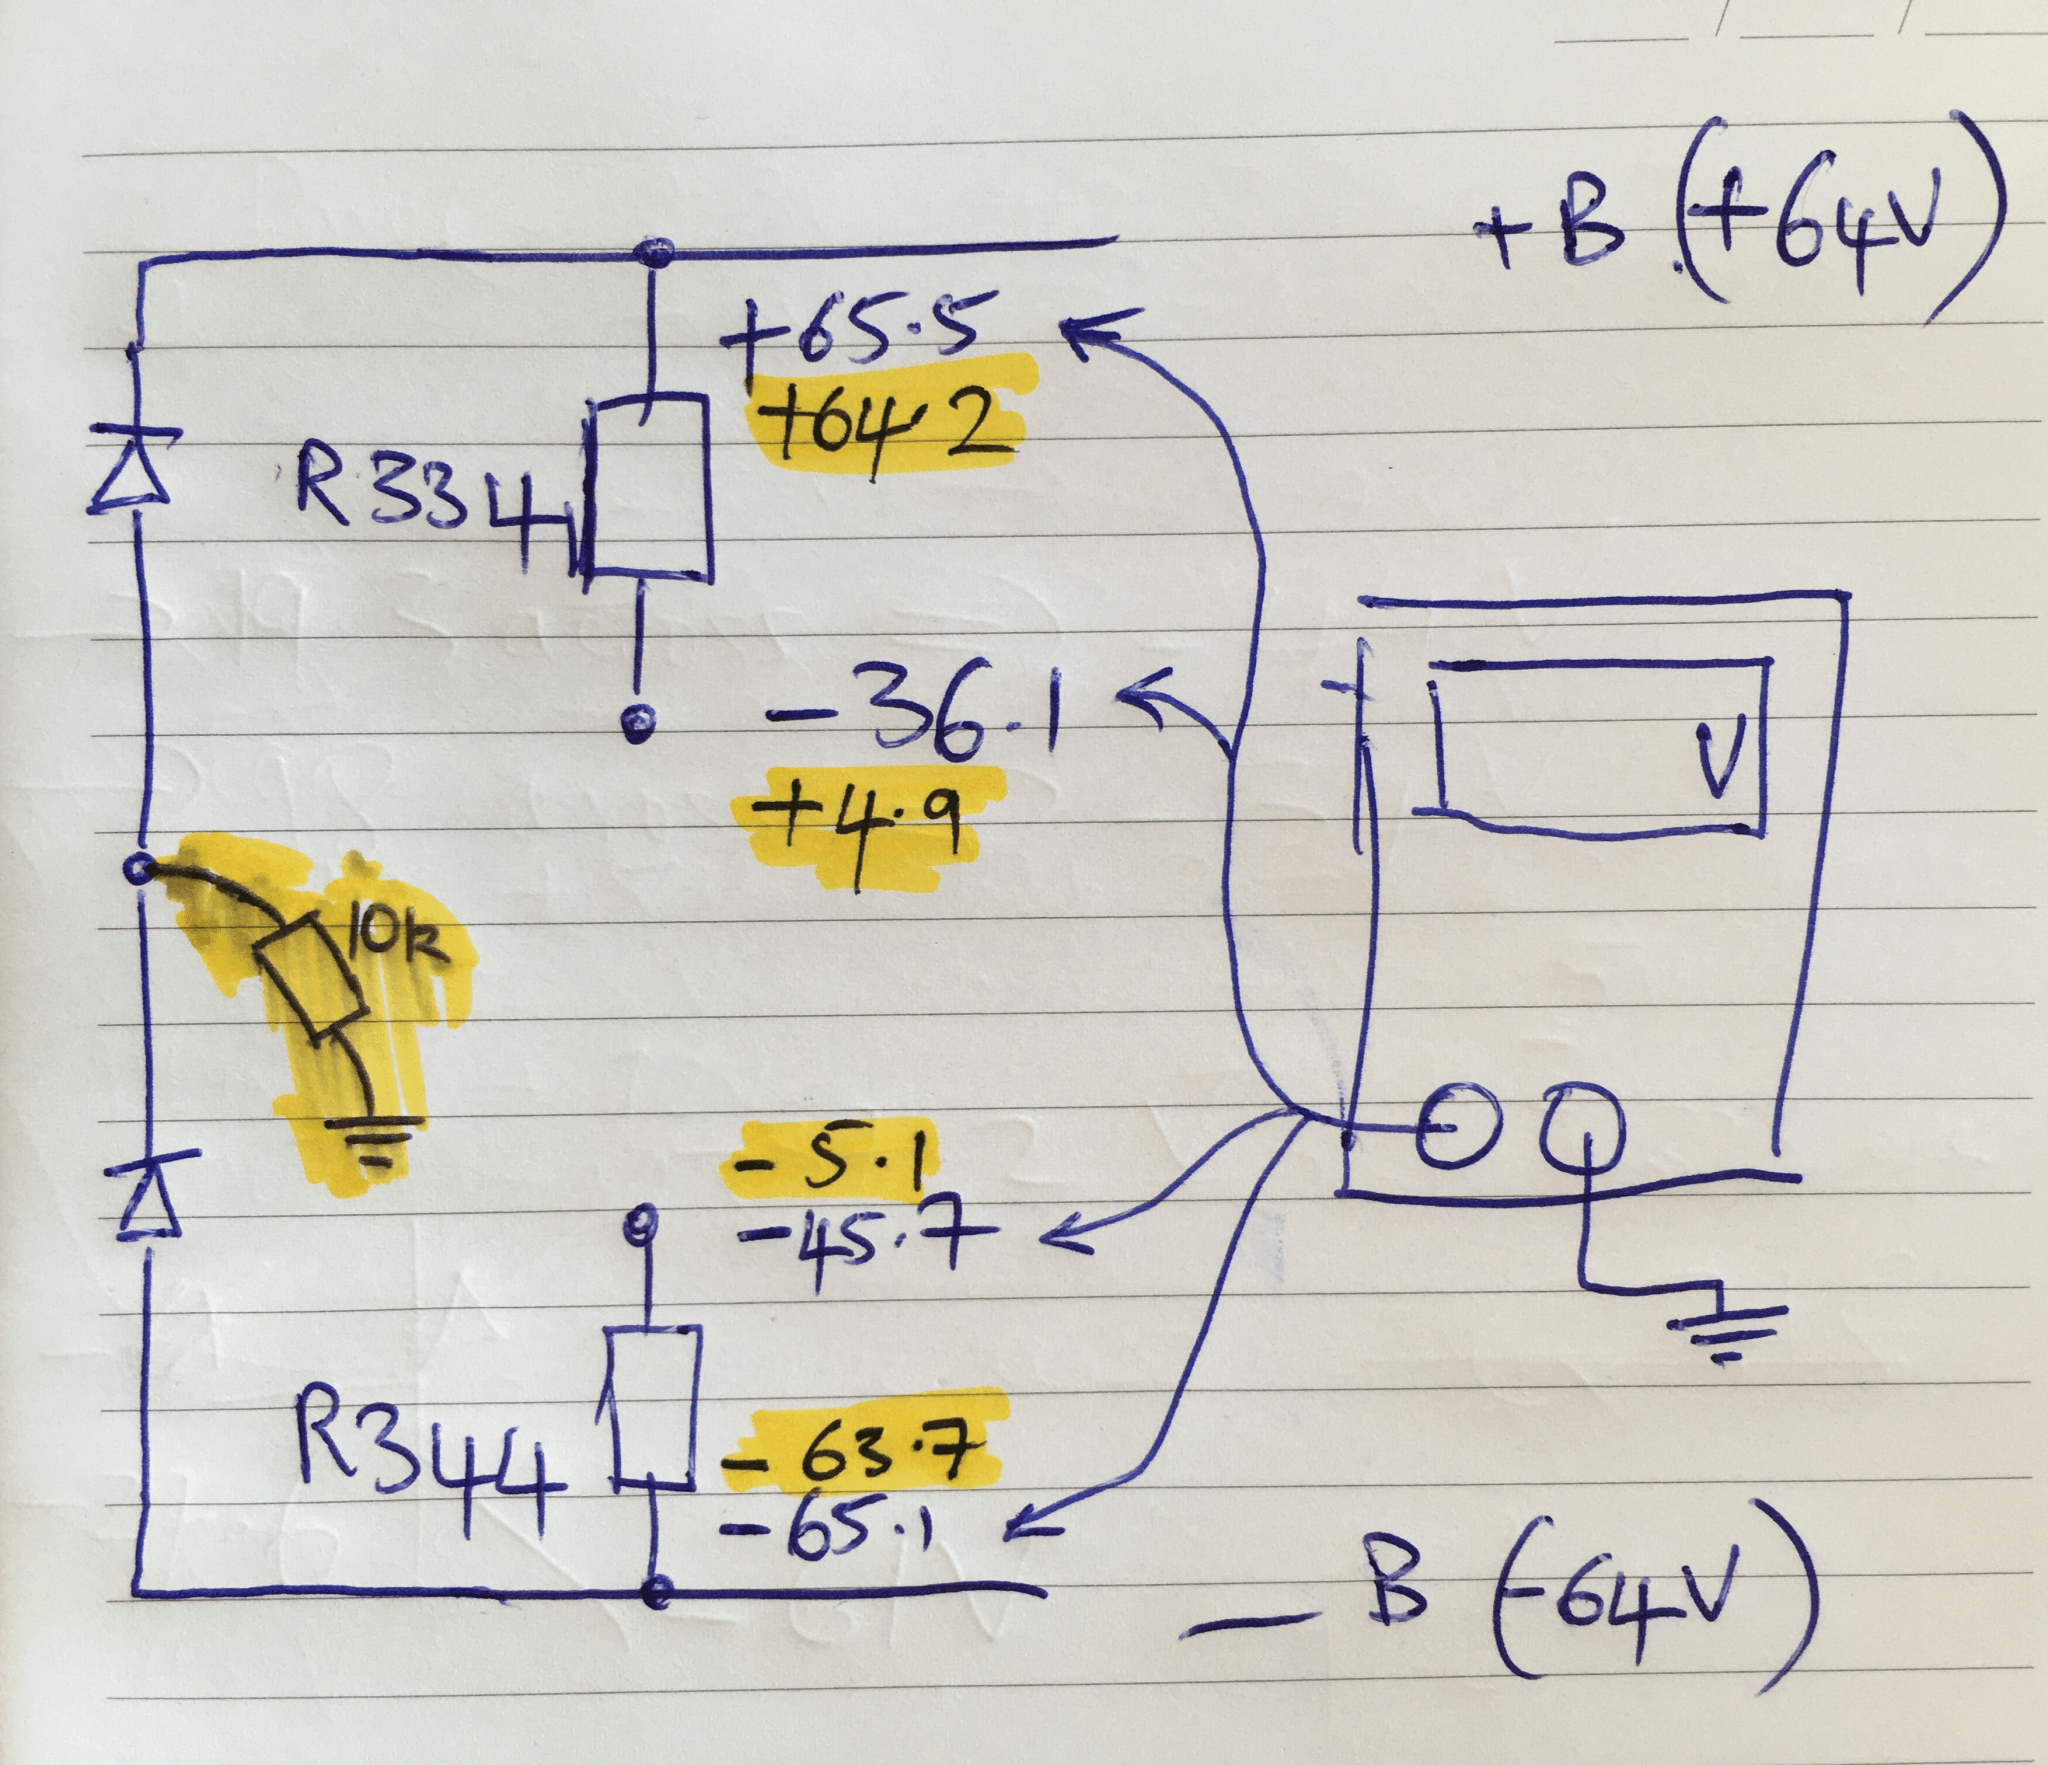 +B (+64V)
+65.5
+64.2
R334
-36.1
V
+4.9
10k
-5.1
-45.7
R344
-63.7
-65.1
-B (-64V)